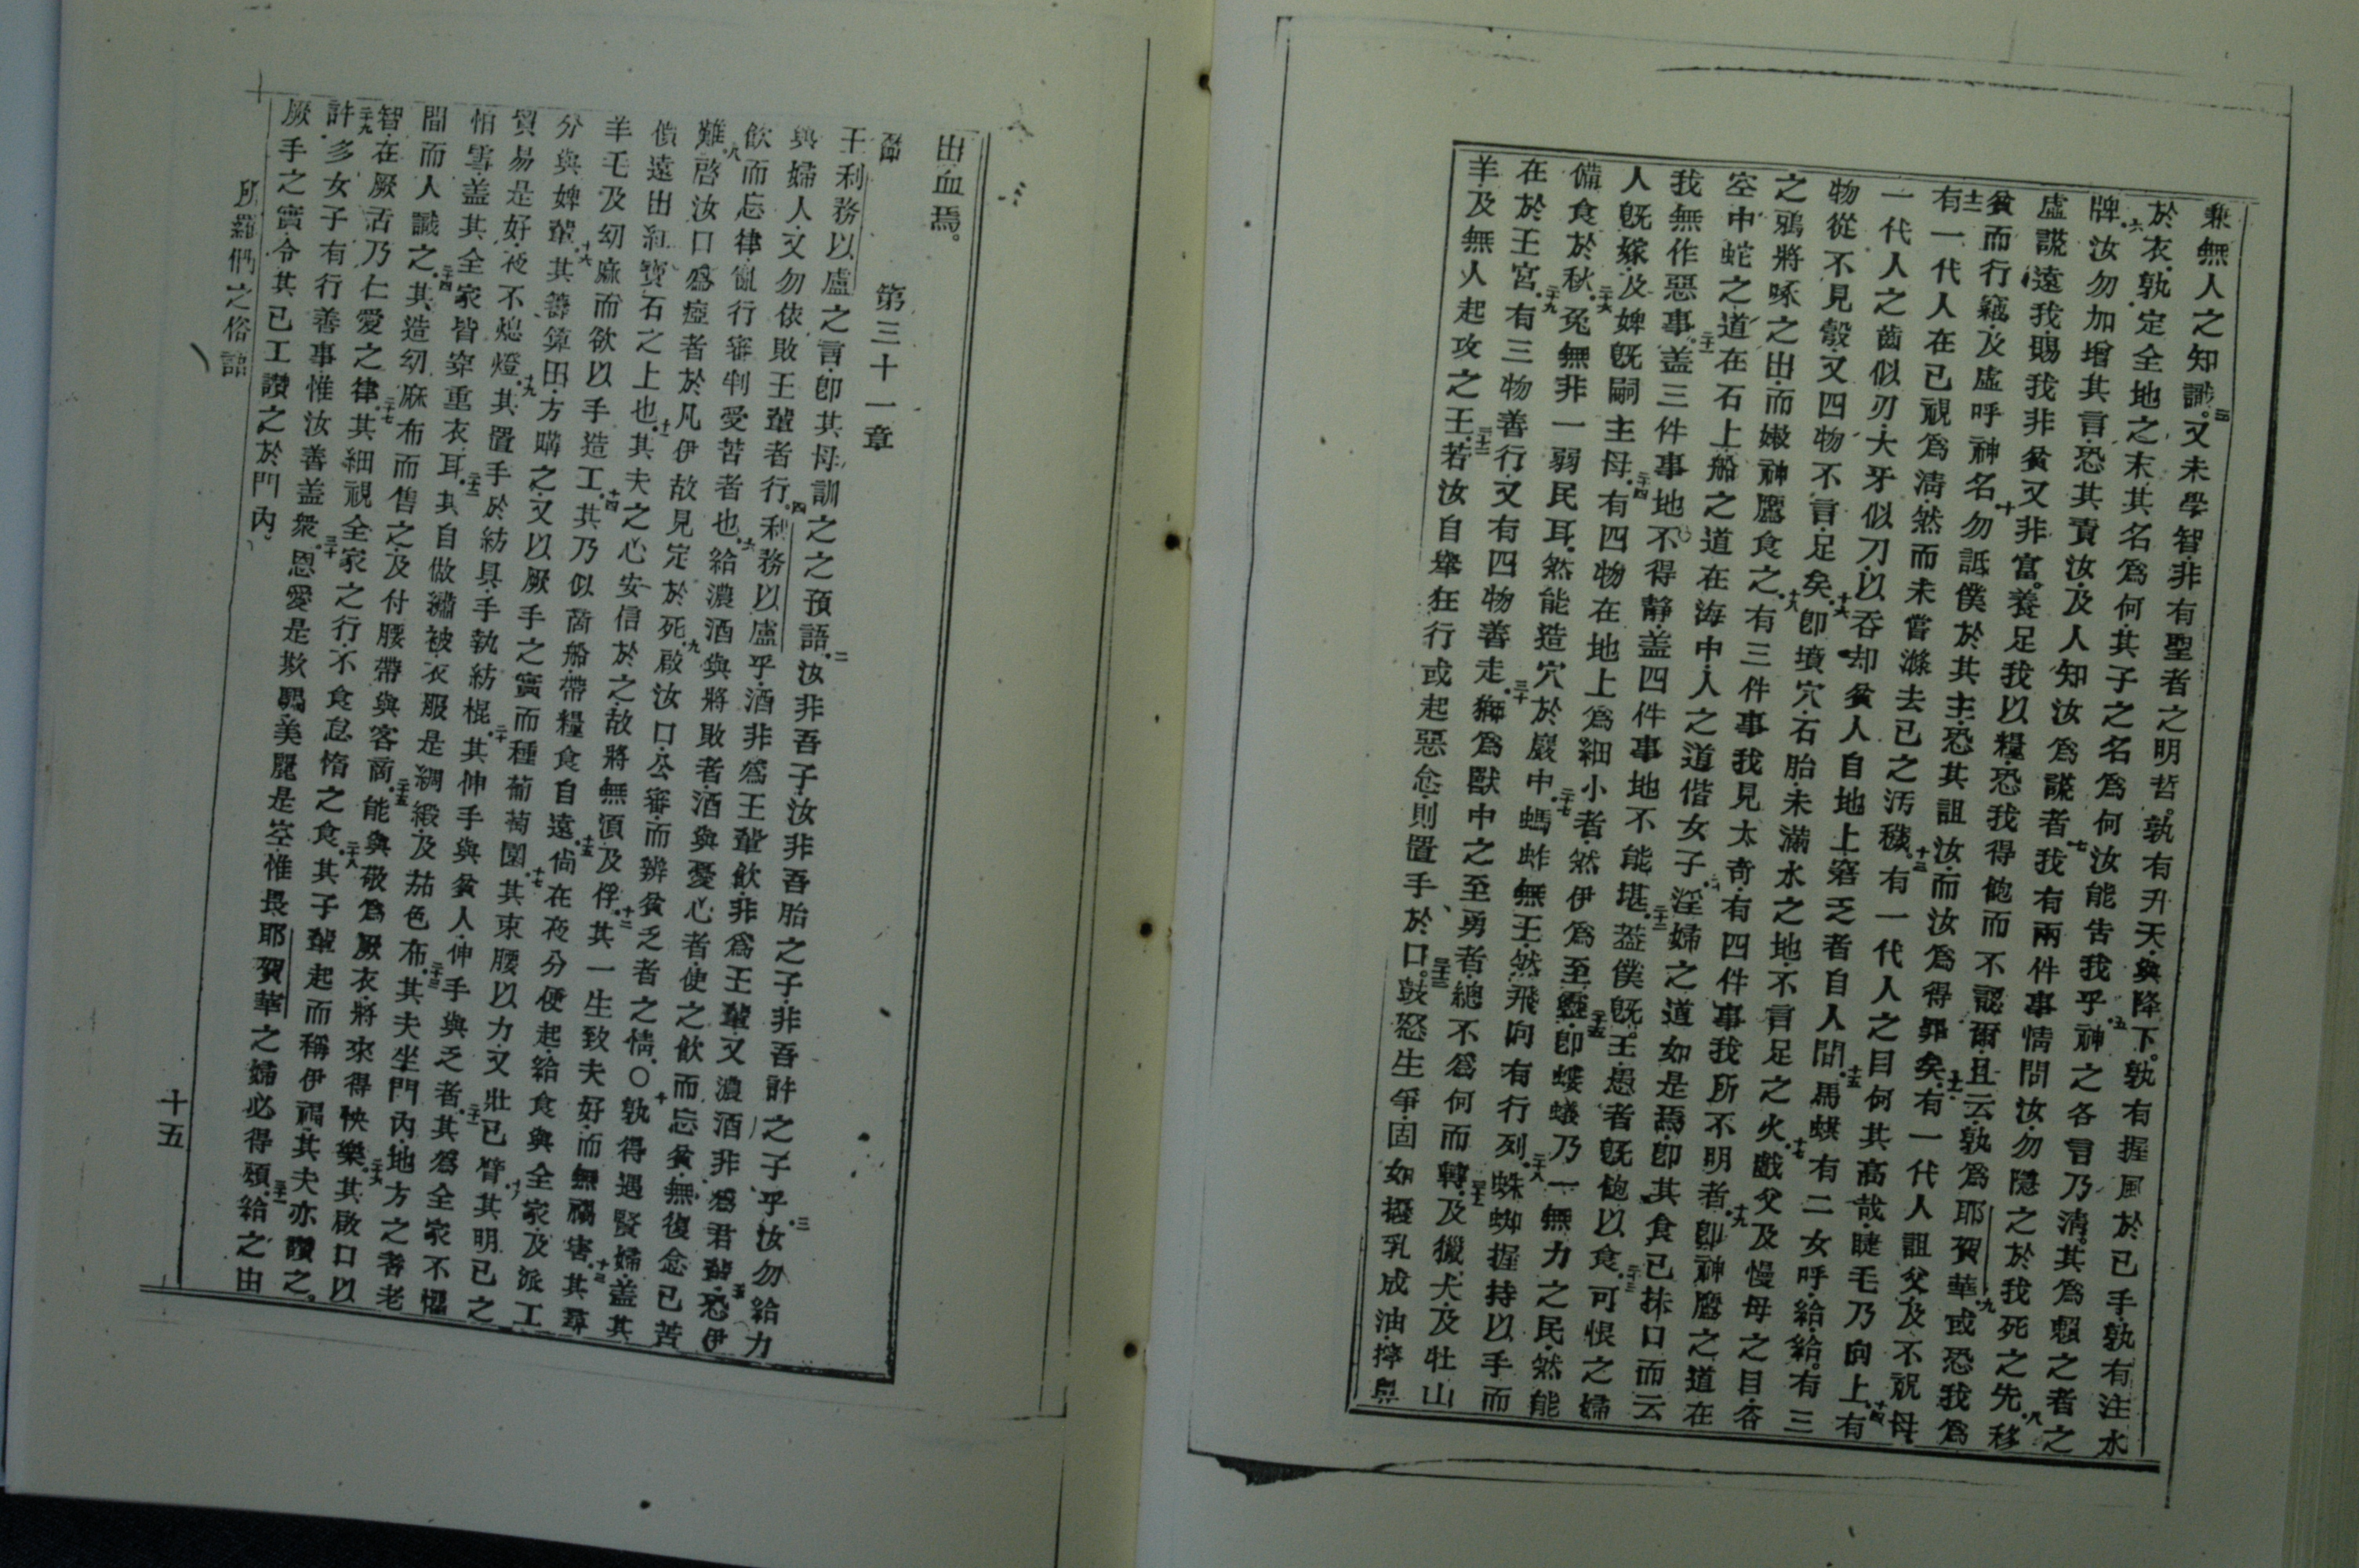 兼無人之知識又未學智非有聖者之明哲孰有升天與降下孰有握風於己手孰有注水
於衣孰定全地之末其名爲何其子之名爲何汝能告我乎神之各言乃淸其爲賴之者之
牌汝勿加增其言恐其責汝及人知汝爲謊者我有兩件事情問汝勿隱之於我死之先移
虛謊遠我賜我非貧又非富養足我以糧恐我得飽而不認爾且云孰爲耶賀華或恐我爲
貧而行竊及虛呼神名勿詆僕於其主恐其詛汝而汝爲得罪矣有一代人詛父及不祝母
有一代人在己視爲淸然而未嘗滌去己之汚穢有一代人之目何其高哉睫毛乃向上有
一代人之齒似刃大牙似刀以吞却貧人自地上窮乏者自人間馬蜞有二女呼給給有三
物從不見彀又四物不言足矣卽墳穴石胎未滿水之地不言足之火戲父及慢母之目谷
之鴉將啄之出而嫩神鷹食之有三件事我見太奇有四件事我所不明者卽神鷹之道在
空中蛇之道在石上船之道在海中人之道偕女子淫婦之道如是焉卽其食已抹口而云
我無作惡事蓋三件事地不得靜蓋四件事地不能堪蓋僕旣王愚者旣飽以食可恨之婦
人旣嫁及婢旣嗣主母有四物在地上爲細小者然伊爲至靈卽螻蟻乃一無力之民然能
備食於秋兔無非一弱民耳然能造穴於巖中螞蚱無王然飛向有行列蛛蜘握持以手而
在於王宮有三物善行又有四物善走獅爲獸中之至勇者總不爲何而轉及獵犬及牡山
羊及無人起攻之王若汝自舉狂行或起惡念則置手於口鼓怒生爭固如擾乳成油擰鼻
出血焉
節 第三十一章
王利務以盧之言卽其母訓之之預語汝非吾子汝非吾胎之子非吾許之子乎汝勿給力
與婦人又勿依敗王輩者行利務以盧乎酒非爲王輩飲非爲王輩又濃酒非爲君輩恐伊
飲而忘律亂行審判受苦者也給濃酒與將敗者酒與憂心者使之飲而忘貧無復念己苦
難啓汝口爲瘂者於凡伊故見定於死啟汝口公審而辨貧乏者之情○孰得遇賢婦蓋其
價遠出紅寶石之上也其夫之心安信於之故將無須及俘其一生致夫好而無禍害其尋
羊毛及幼麻而欲以手造工其乃似商船帶糧食自遠尙在夜分便起給食與全家及派工
分與婢輩其籌算田方購之又以厥手之實而種葡萄園其束腰以力又壯己臂其明己之
貿易是好夜不熄燈其置手於紡具手執紡棍其伸手與貧人伸手與乏者其爲全家不懼
怕雪蓋其全家皆穿重衣耳其自做繡被衣服是綢緞及茄色布其夫坐門內地方之耆老
間而人識之其造幼麻布而售之及付腰帶與客商能與敬爲厥衣將來得快樂其啟口以
智在厥舌乃仁愛之律其細視全家之行不食怠惰之食其子輩起而稱伊福其夫亦讚之
許多女子有行善事惟汝善蓋衆恩愛是欺騙美麗是空惟畏耶賀華之婦必得頌給之由
厥手之實令其己工讚之於門內
所羅們之俗語
十五